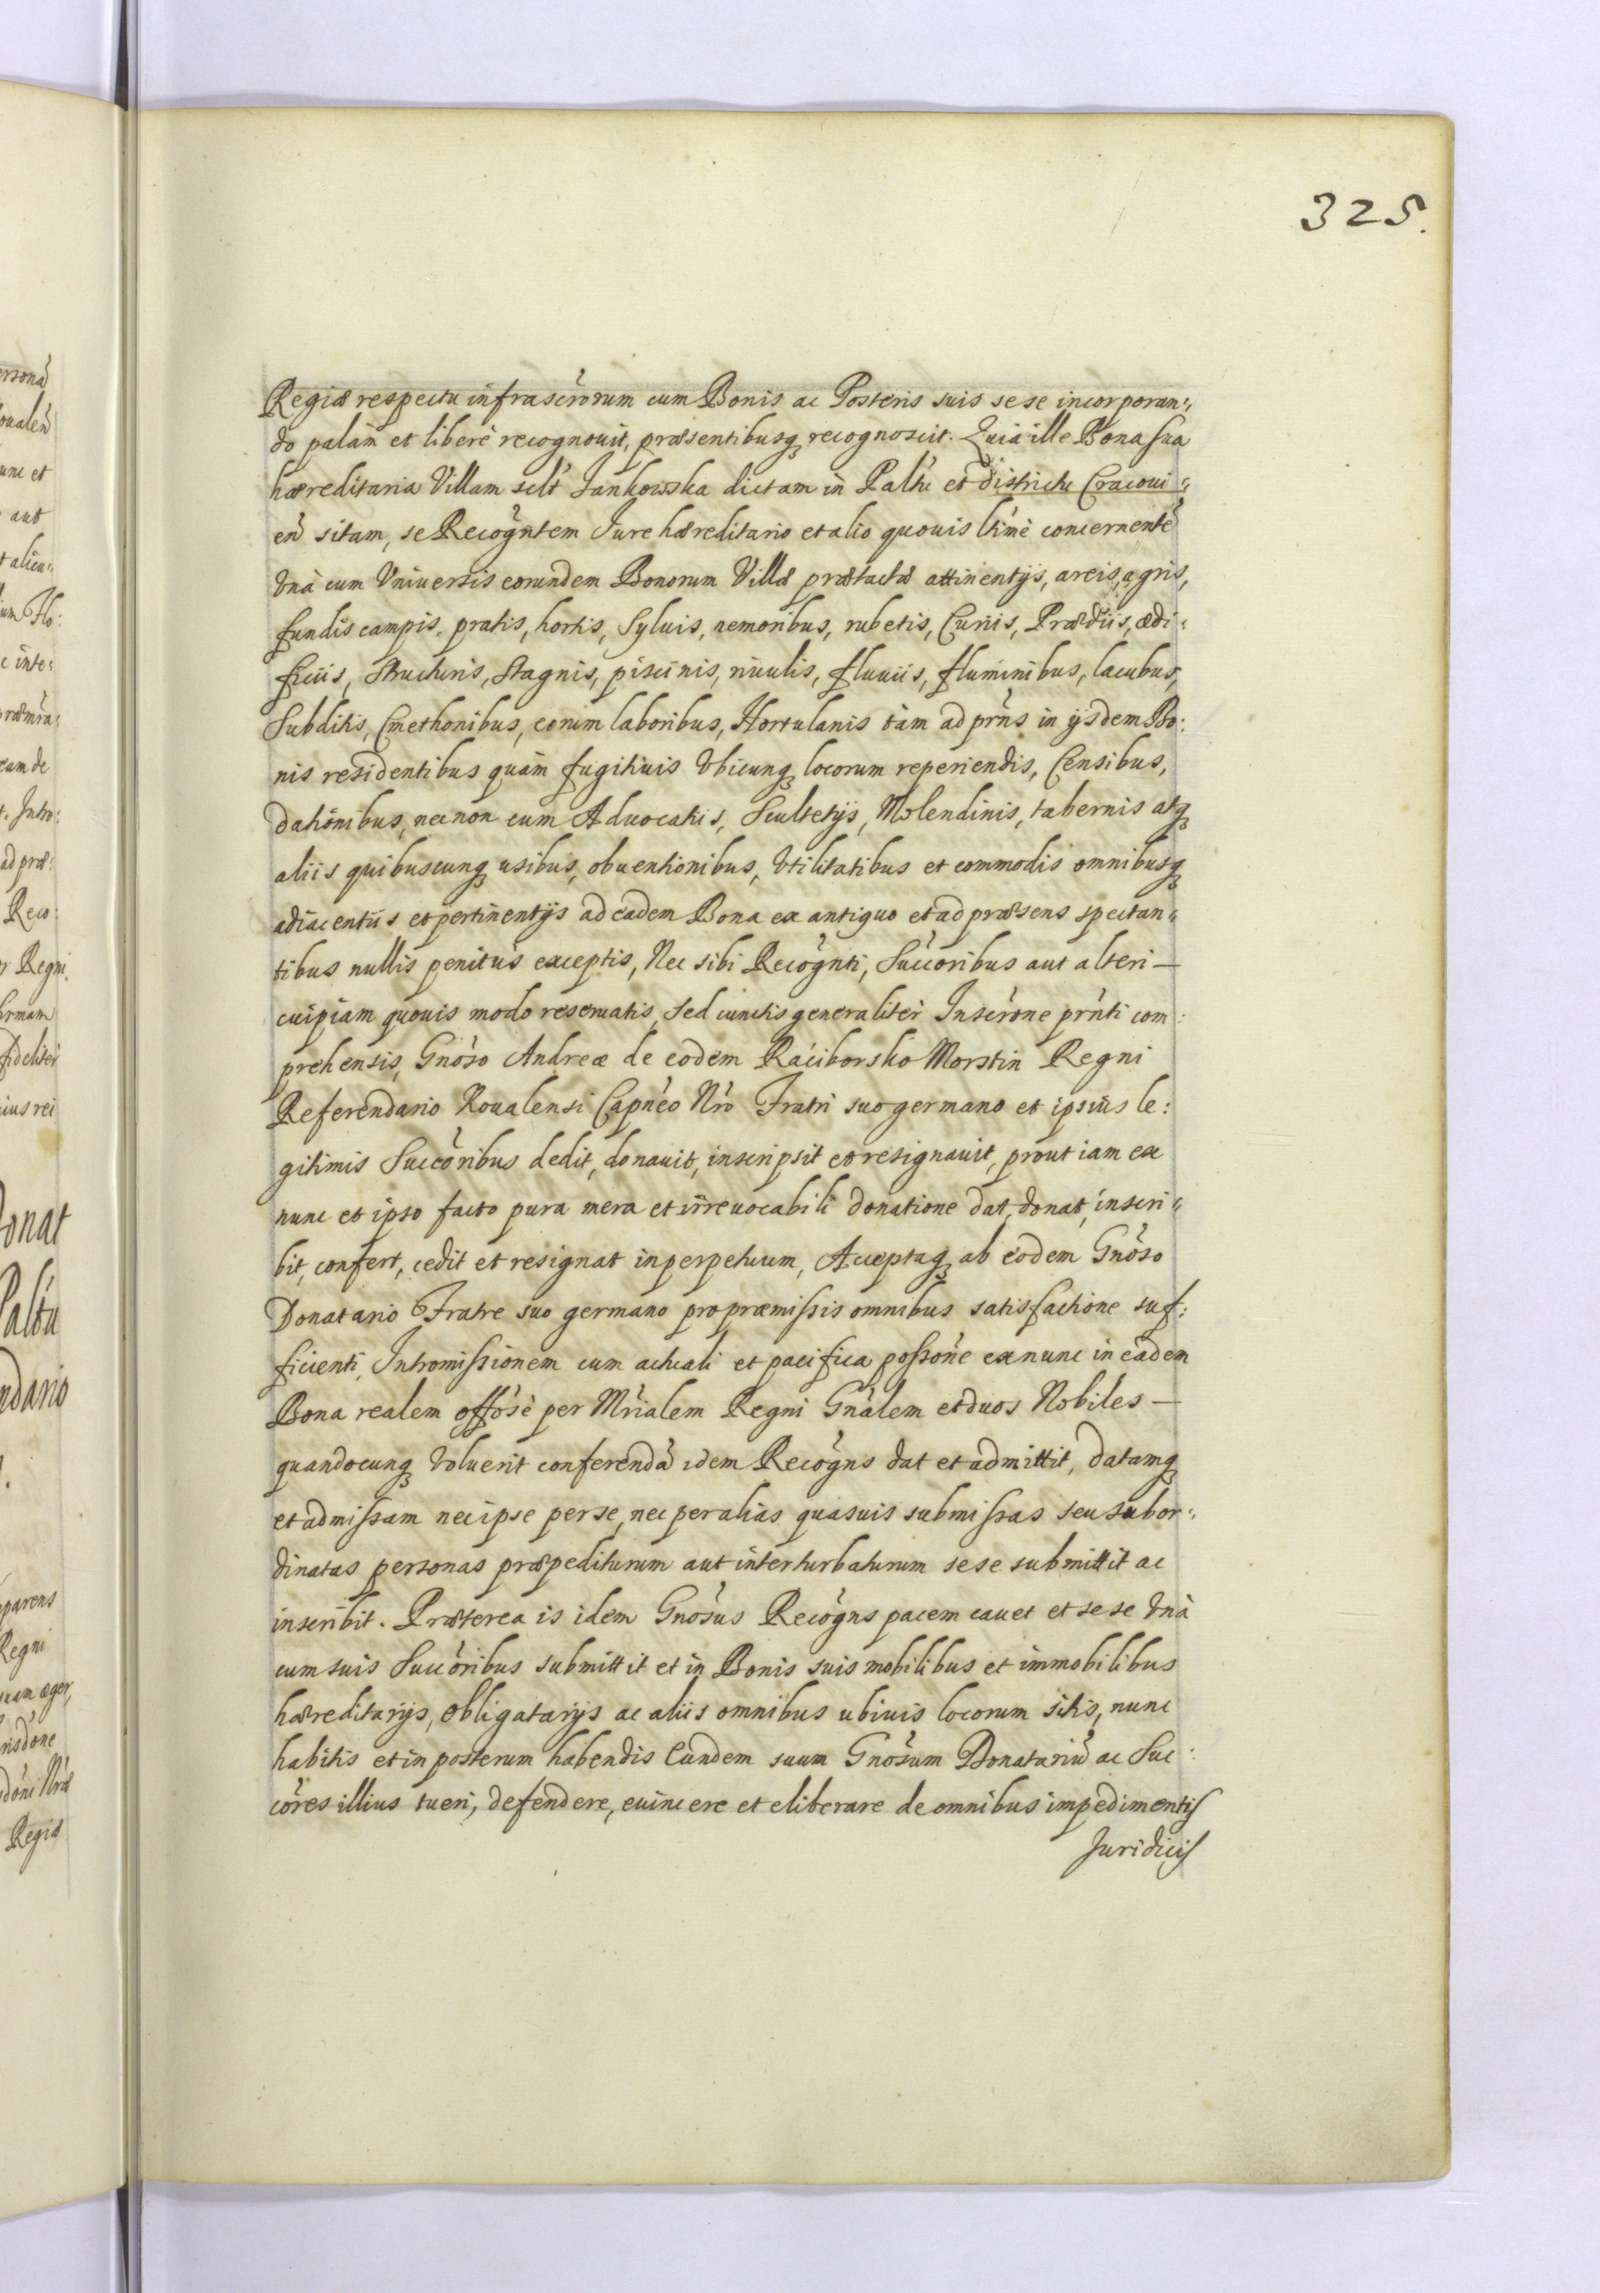 325.
Regiæ respectu infrascrõrum cum Bonis ac Posteris suis sese incorporan:
do palàm et liberè recognouit, præsentibusq recognoscit. Quia ille Bona sua
hæreditaria Villam sclt Jankowska dictam in Paltu et districtu Cracoui:
eñ sitam, se Recogntem Jure hæreditario et alio quouis ltimè concernente
Vnà cum Vniuersis eorundem Bonorum Villæ prætactæ attinentijs, areis, agris,
fundis campis, pratis, hortis, Syluis, nemoribus, rubetis, Curiis, Prædiis, ædi:
ficiis, structuris, stagnis, piscinis, riuulis, fluuiis, fluminibus, lacubus,
Subditis, Cmethonibus, eorum laboribus, Hortulanis tàm ad prñs in ijsdem Bo:
nis residentibus quàm fugitiuis Vbicunq locorum reperiendis, Censibus,
dationibus, necnon cum Aduocatis, Scultetijs, Molendinis, tabernis atq
aliis quibuscunq usibus, obuentionibus, Vtilitatibus et commodis omnibusq
adiacentiis et pertinentijs ad eadem Bona ex antiquo et ad præsens spectan:
tibus nullis penitùs exceptis, Nec sibi Recognti, Succoribus aut alteri —
cuipiam quouis modo reseruatis, sed cunctis generalitèr Inscrõne prñti com:
prehensis, Gnoso Andreæ de eodem Raciborsko Morstin Regni
Referendario Koualensi Capneo Nro Fratri suo germano et ipsius le:
gitimis Succoribus dedit, donauit, inscripsit et resignauit, prout iam ex
nunc et ipso facto pura mera et irreuocabili donatione dat, donat, inscri:
bit, confert, cedit et resignat in perpetuum, Acceptaq ab eodem Gnoso
Donatario Fratre suo germano pro præmissis omnibus satisfactione suf:
ficienti, Intromissionem cum actuali et pacifica possone ex nunc in eadem
Bona realem offosè per Mrialem Regni Gnalem et duos Nobiles —
quandocunq Voluerit conferendã idem Recogns dat et admittit, datamq
et admissam nec ipse per se, nec per alias quasuis submissas seu subor:
dinatas personas præpediturum aut interturbaturum sese submittit ac
inscribit. Præterea is idem Gnosus Recogns pacem cauet et sese Vnà
cum suis Succoribus submittit et in Bonis suis mobilibus et immobilibus
hæreditarijs, obligatarijs ac aliis omnibus ubiuis locorum sitis, nunc
habitis et in posterum habendis Eundem suum Gnosum Donatariũ ac Suc:
cores illius tueri, defendere, euincere et eliberare de omnibus impedimentis
Juridicis